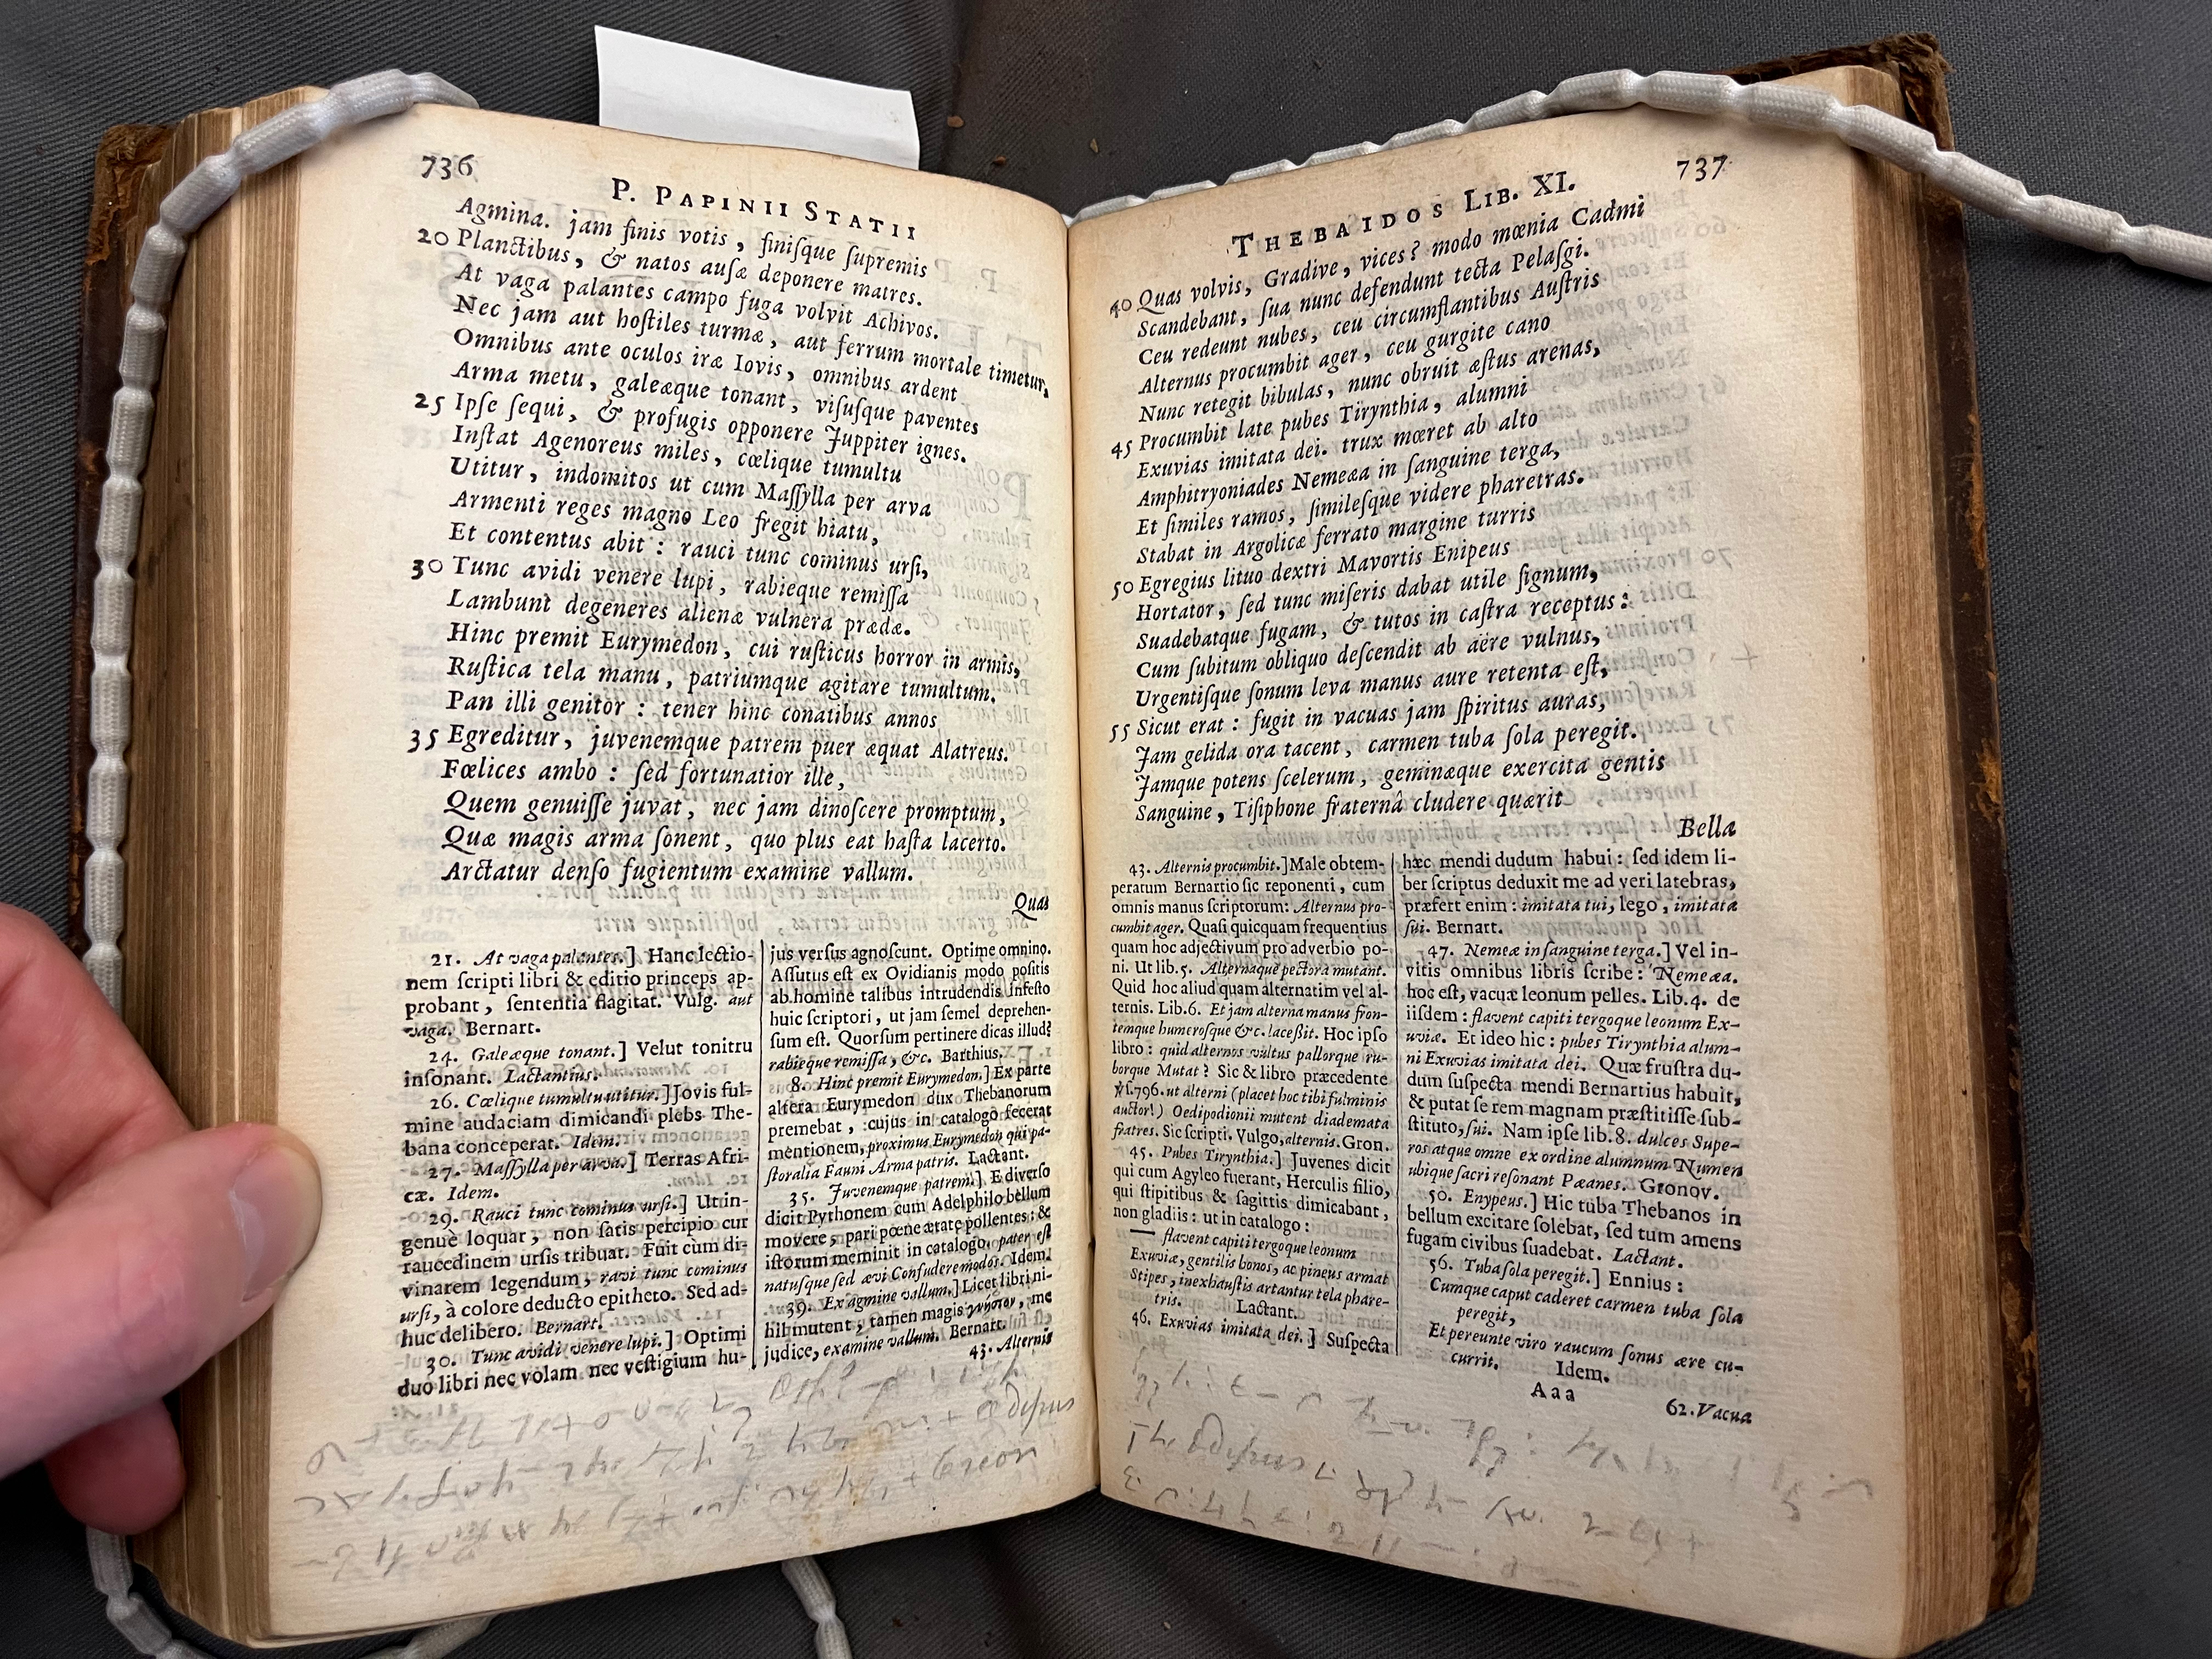 736
P. PAPINII STATII
Agmina. jam finis votis, finiſque ſupremis
20 Planctibus, & natos auſæ deponere matres.
At vaga palantes campo fuga volvit Achivos.
Nec jam aut hoſtiles turmæ, aut ferrum mortale timetur,
Omnibus ante oculos iræ Iovis, omnibus ardent
Arma metu, galeæque tonant, viſuſque paventes
25 Ipſe ſequi, & profugis opponere Juppiter ignes.
Inſtat Agenoreus miles, cœlique tumultu
Utitur, indomitos ut cum Maſſylla per arva
Armenti reges magno Leo fregit hiatu,
Et contentus abit: rauci tunc cominus urſi,
30 Tunc avidi venere lupi, rabieque remiſſa
Lambunt degeneres alienæ vulnera prædæ.
Hinc premit Eurymedon, cui ruſticus horror in armis,
Ruſtica tela manu, patriumque agitare tumultum.
Pan illi genitor: tener hinc conatibus annos
35 Egreditur, juvenemque patrem puer æquat Alatreus.
Fœlices ambo: ſed fortunatior ille,
Quem genuiſſe juvat, nec jam dinoſcere promptum,
Quæ magis arma ſonent, quo plus eat haſta lacerto.
Arctatur denſo fugientum examine vallum.
Quas
21. At vaga palantes.] Hanc lectio-
nem ſcripti libri & editio princeps ap-
probant, ſententia flagitat. Vulg. aut
vaga. Bernart.
24. Galeæque tonant.] Velut tonitru
inſonant. Lactantius.
26. Cœlique tumultu utitur.] Jovis ful-
mine audaciam dimicandi plebs The-
bana conceperat. Idem.
27. Maſſylla per arva.] Terras Afri-
cæ. Idem.
29. Rauci tunc cominus urſi.] Ut in-
genuè loquar, non ſatis percipio cur
raucedinem urſis tribuat. Fuit cum di-
vinarem legendum, ravi tunc cominus
urſi, à colore deducto epitheto. Sed ad-
huc delibero. Bernart.
30. Tunc avidi venere lupi.] Optimi
duo libri nec volam nec veſtigium hu-
jus verſus agnoſcunt. Optime omnino.
Aſſutus eſt ex Ovidianis modo poſitis
ab homine talibus intrudendis infeſto
huic ſcriptori, ut jam ſemel deprehen-
ſum eſt. Quorſum pertinere dicas illud?
rabieque remiſſa, &c. Barthius.
8. Hinc premit Eurymedon.] Ex parte
altera Eurymedon dux Thebanorum
premebat, cujus in catalogo fecerat
mentionem, proximus Eurymedon qui pa-
ſtoralia Fauni Arma patris. Lactant.
35. Juvenemque patrem.] E diverſo
dicit Pythonem cum Adelphilo bellum
movere, pari pœne ætate pollentes: &
iſtorum meminit in catalogo, pater eſt
natuſque ſed ævi Confudere modos. Idem.
39. Ex agmine vallum.] Licet libri ni-
hil mutent, tamen magis γνήσιον, me
judice, examine vallum. Bernart.
43. Alternis
THEBAIDOS LIB. XI.
737
40 Quas volvis, Gradive, vices? modo mœnia Cadmi
Scandebant, ſua nunc defendunt tecta Pelaſgi.
Ceu redeunt nubes, ceu circumflantibus Auſtris
Alternus procumbit ager, ceu gurgite cano
Nunc retegit bibulas, nunc obruit æſtus arenas,
45 Procumbit late pubes Tirynthia, alumni
Exuvias imitata dei. trux mœret ab alto
Amphitryoniades Nemeæa in ſanguine terga,
Et ſimiles ramos, ſimileſque videre pharetras.
Stabat in Argolicæ ferrato margine turris
50 Egregius lituo dextri Mavortis Enipeus
Hortator, ſed tunc miſeris dabat utile ſignum,
Suadebatque fugam, & tutos in caſtra receptus:
Cum ſubitum obliquo deſcendit ab aëre vulnus,
Urgentiſque ſonum leva manus aure retenta eſt,
55 Sicut erat: fugit in vacuas jam ſpiritus auras,
Jam gelida ora tacent, carmen tuba ſola peregit.
Jamque potens ſcelerum, geminæque exercita gentis
Sanguine, Tiſiphone fraternâ cludere quærit
Bella
43. Alternis procumbit.] Male obtem-
peratum Bernartio ſic reponenti, cum
omnis manus ſcriptorum: Alternus pro-
cumbit ager. Quaſi quicquam frequentius
quam hoc adjectivum pro adverbio po-
ni. Ut lib. 5. Alternaque pectora mutant.
Quid hoc aliud quam alternatim vel al-
ternis. Lib. 6. Et jam alterna manus fron-
temque humeroſque &c. laceſſit. Hoc ipſo
libro: quid alternos vultus pallorque ru-
borque Mutat? Sic & libro præcedente
ẏ. 796. ut alterni (placet hoc tibi fulminis
auctor!) Oedipodionii mutent diademata
fratres. Sic ſcripti. Vulgo, alternis. Gron.
45. Pubes Tirynthia.] Juvenes dicit
qui cum Agyleo fuerant, Herculis filio,
qui ſtipitibus & ſagittis dimicabant,
non gladiis: ut in catalogo:
— flavent capiti tergoque leonum
Exuviæ, gentilis honos, ac pineus armat
Stipes, inexhauſtis artantur tela phare-
tris. Lactant.
46. Exuvias imitata dei.] Suſpecta
hæc mendi dudum habui: ſed idem li-
ber ſcriptus deduxit me ad veri latebras,
præfert enim: imitata tui, lego, imitata
ſui. Bernart.
47. Nemeæ in ſanguine terga.] Vel in-
vitis omnibus libris ſcribe: Nemeæa.
hoc eſt, vacuæ leonum pelles. Lib. 4. de
iiſdem: flavent capiti tergoque leonum Ex-
uviæ. Et ideo hic: pubes Tirynthia alum-
ni Exuvias imitata dei. Quæ fruſtra du-
dum ſuſpecta mendi Bernartius habuit,
& putat ſe rem magnam præſtitiſſe ſub-
ſtituto, ſui. Nam ipſe lib. 8. dulces Supe-
ros atque omne ex ordine alumnum Numen
ubique ſacri reſonant Pæanes. Gronov.
50. Enypeus.] Hic tuba Thebanos in
bellum excitare ſolebat, ſed tum amens
fugam civibus ſuadebat. Lactant.
56. Tuba ſola peregit.] Ennius:
Cumque caput caderet carmen tuba ſola
peregit,
Et pereunte viro raucum ſonus ære cu-
currit. Idem.
Aaa
62. Vacua
Œdipus
Creon
Œdipus